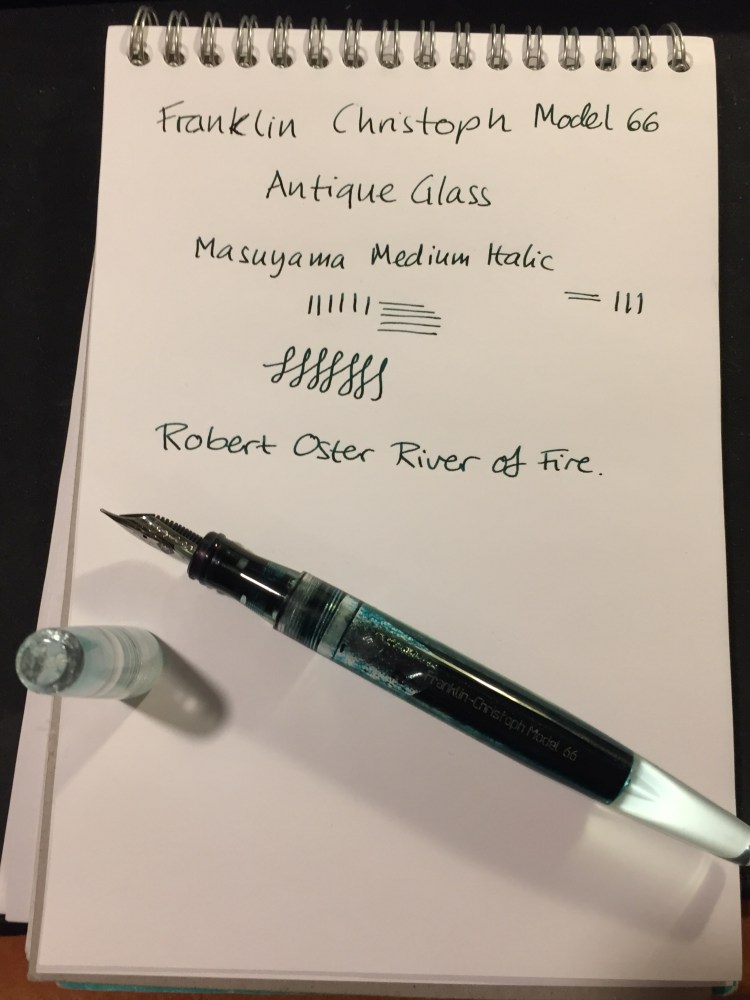 Franklin Christoph Model 66
Antique Glass
Masuyama Medium Italic
Robert Oster River of Fire.
Franklin-Christoph Model 66